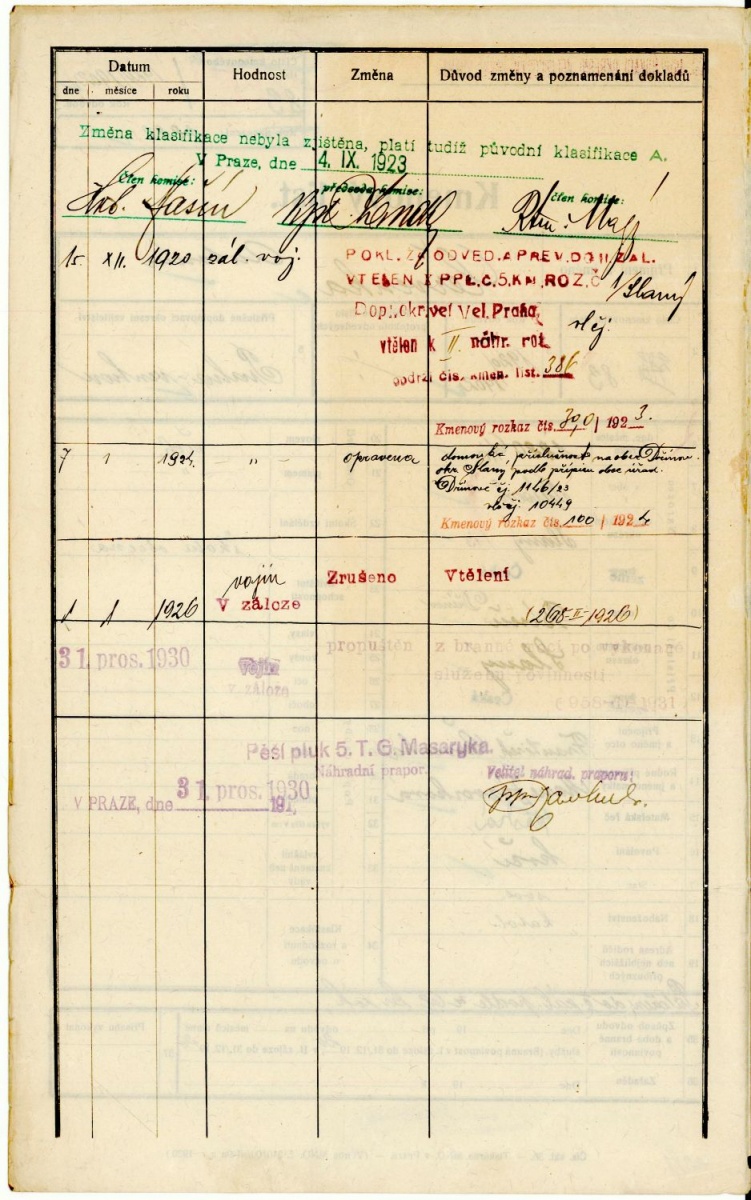 Datum Hodnost Změna Důvod změny a poznamenání dokladů
dne měsíce roku
Změna klasifikace nebyla zjištěna, platí tudíž původní klasifikace A.
V Praze, dne 4. IX. 1923
Člen komise: předseda komise: člen komise:
15 XII. 1920 zál. voj.
POKL. ZA ODVED. A PREV. DO II. ZÁL.
VTĚLEN K P.PL. Č. 5, KM. ROZ. Č
Dopl. okr. vel. Vel. Praha
v Slaný
vtělen k II. náhr. rot.
podrží čís. kmen. list. 386
Kmenový rozkaz čís. 300 / 1923.
7 1 1924. " opravena domovská příslušnost na obec Dřínov
okr. Slaný podle přípisu obec. úřad.
Dřínov čj. 1146/23
čj. 10449
Kmenový rozkaz čís. 100 / 1924
1 1 1926 vojín
V záloze
Zrušeno Vtělení
(268-II-1926)
31. pros. 1930 vojín
v záloze
propuštěn z branné po vykonané
služební povinnosti
Pěší pluk 5. T. G. Masaryka.
Náhradní prapor.
V PRAZE, dne 31. pros. 1930
191
Velitel náhrad. praporu: